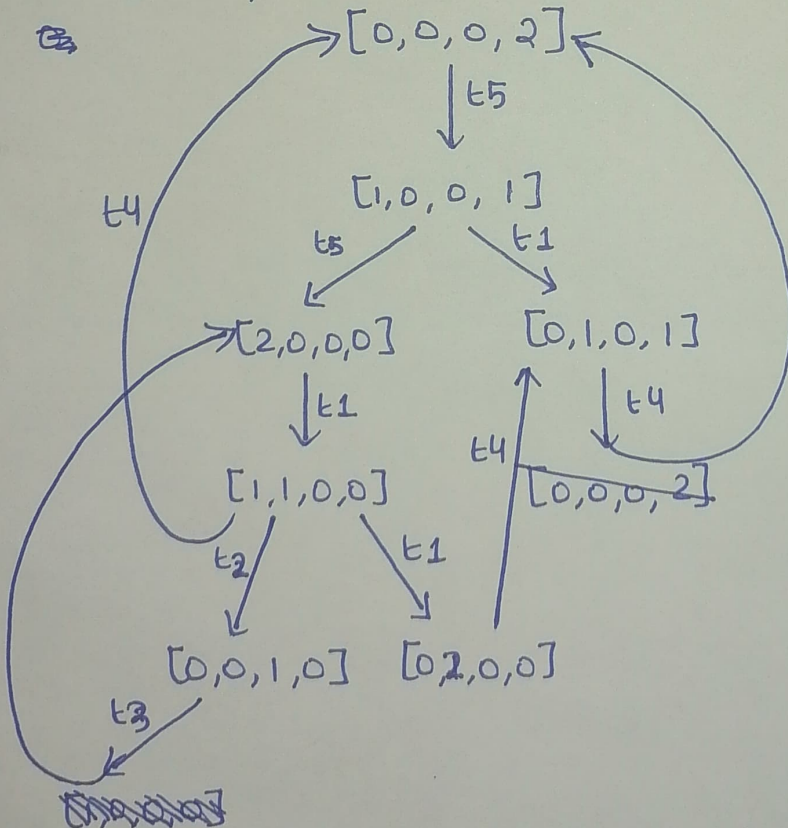 [0,0,0,2]
t5
[1,0,0,1]
t4
t5
t1
[2,0,0,0]
[0,1,0,1]
t1
t4
t4
[1,1,0,0]
[0,0,0,2]
t2
t1
[0,0,1,0]
[0,2,0,0]
t3